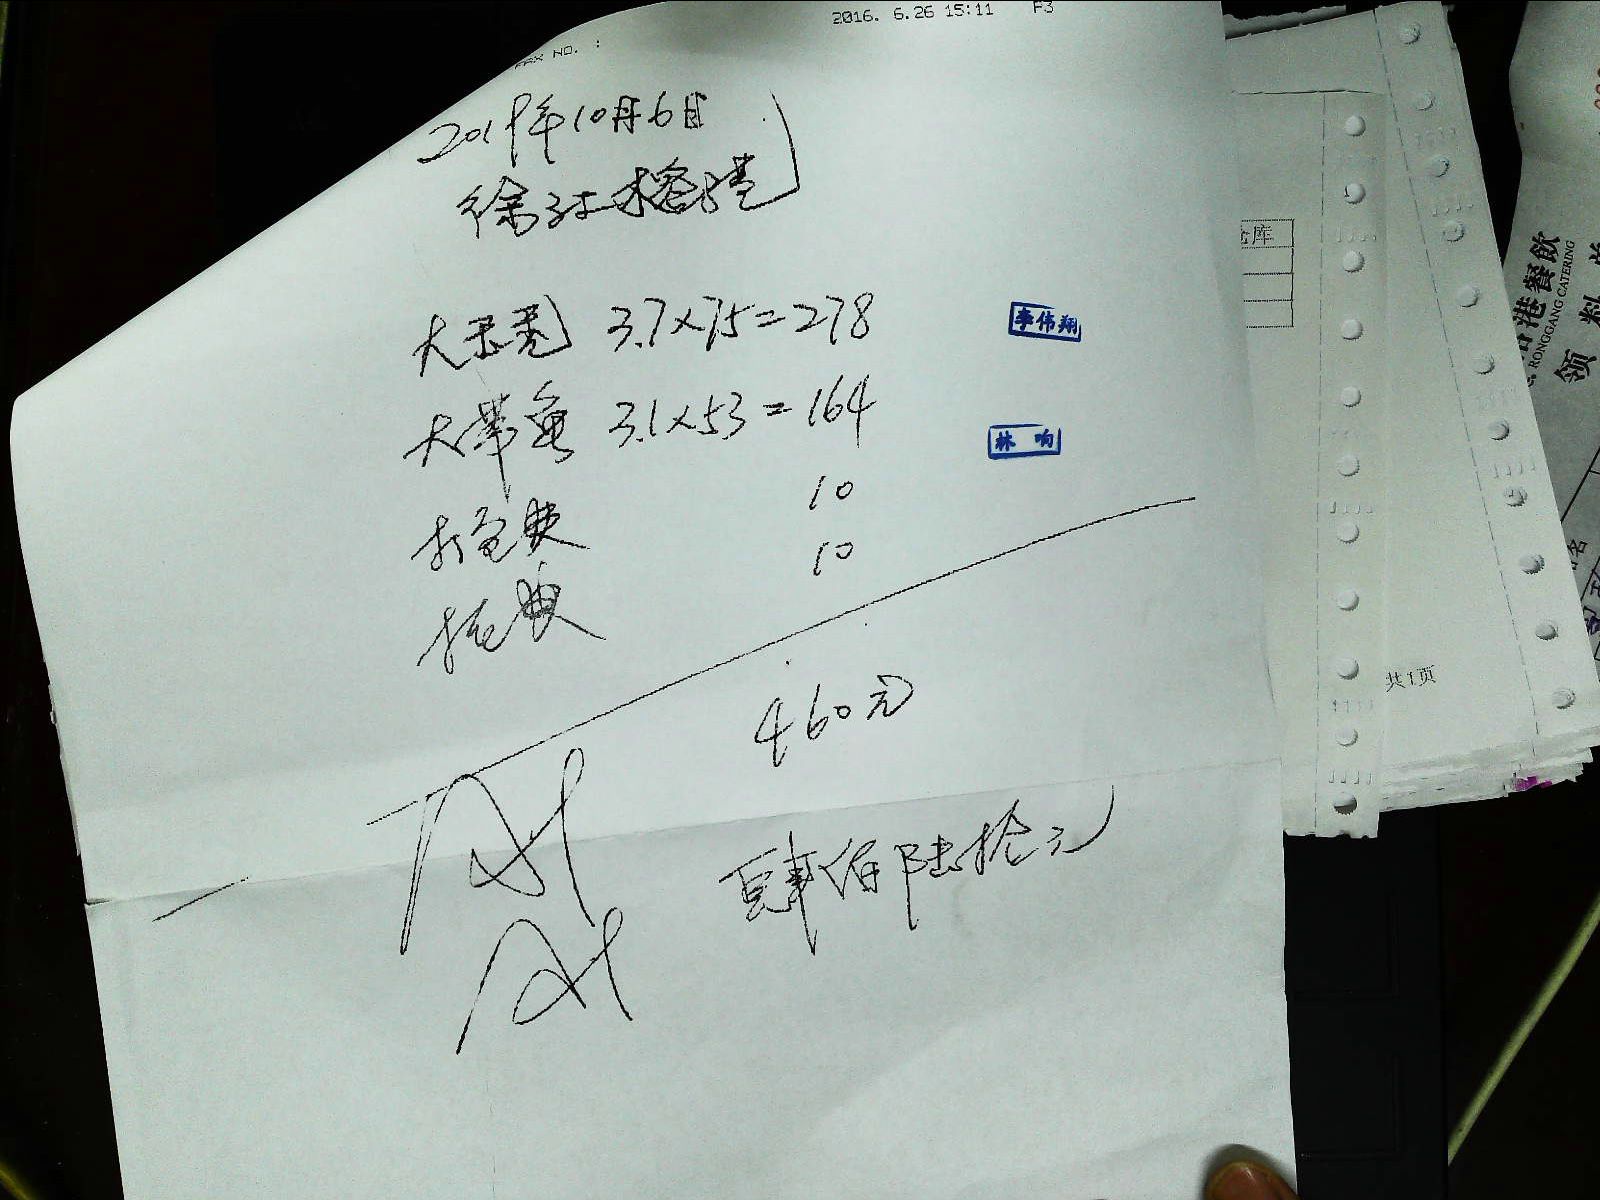 2016. 6.26 15:11 F3
FAX NO. :
2019年10月6日
徐汇榕港
3.7×75=278
李伟翔
大带鱼 3.1×53=164
林响
打包费 10
10
460元
肆佰陆拾元
仓库
共1页
港餐飲
RONGGANG CATERING
领料单